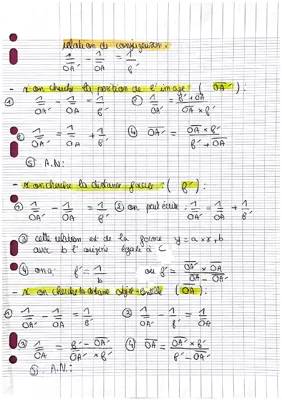 relation de conjugaison :
1/OA' - 1/OA = 1/f'
- si on cherche la position de l'image : ( OA' ) :
① 1/OA' - 1/OA = 1/f' ② 1/OA' = f' + OA / OA × f'
③ 1/OA' = 1/OA + 1/f' ④ OA' = OA × f' / f' + OA
⑤ A.N :
- si on cherche la distance focale : ( f' ) :
① 1/OA' - 1/OA = 1/f' ② on peut écrire : 1/OA' = 1/OA + 1/f'
③ cette relation est de la forme y = a × x, b
avec b l'origine égale à
④ on a : f' = 1/b ou f' = OA' × OA / OA - OA'
- si on cherche la distance objet - lentille ( OA ) :
① 1/OA' - 1/OA = 1/f' ② 1/OA' - 1/f' = 1/OA
③ 1/OA = f' - OA' / OA' × f' ④ OA = OA' × f' / f' - OA'
⑤ A.N :